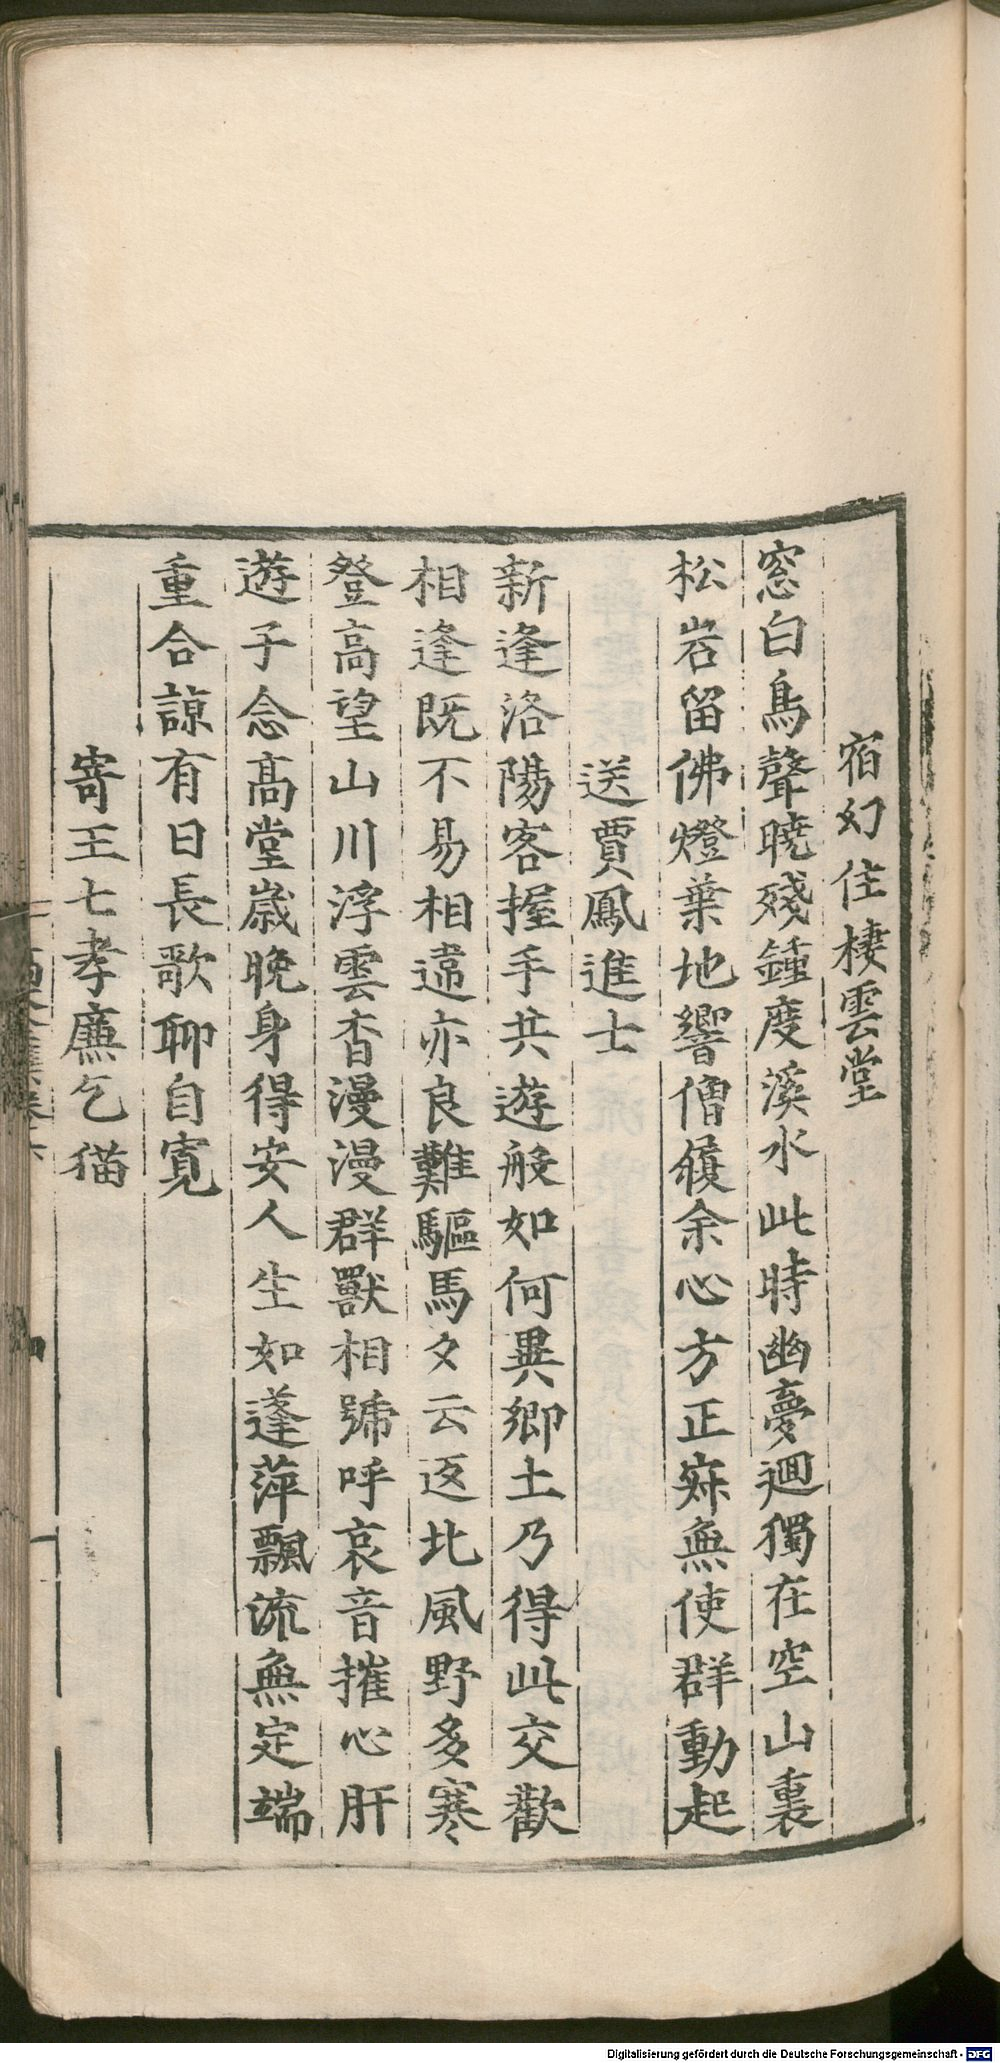 宿幻住棲雲堂
窓白鳥聲曉殘鍾度溪水此時幽夢迴獨在空山裏
松岩留佛燈葉地響僧履余心方正寂無使群動起
送賈鳳進士
新逢洛陽客握手共遊般如何異鄉土乃得此交歡
相逢既不易相違亦良難驅馬夊云返北風野多寒
登高望山川浮雲杳漫漫群獸相號呼哀音摧心肝
遊子念髙堂歳晚身得安人生如蓬萍飄流無定端
重合諒有日長歌聊自寛
寄王七孝廉乞猫
Digitalisierung gefördert durch die Deutsche Forschungsgemeinschaft - DFG